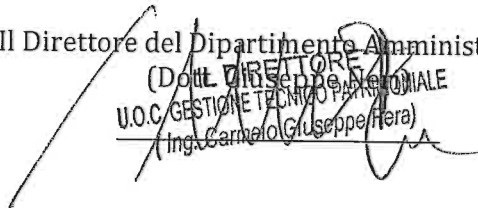 Il Direttore del Dipartimento Amminist
(Dott. Giuseppe
IL DIRETTORE
U.O.C. GESTIONE TECNICO PATRIMONIALE
(Ing. Carmelo Giuseppe Fera)